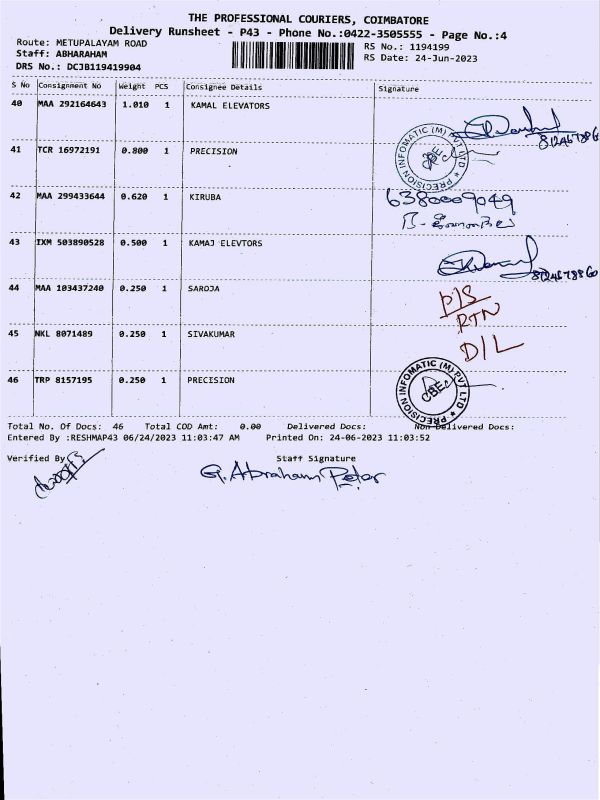 THE PROFESSIONAL COURIERS, COIMBATORE
Delivery Runsheet - P43 - Phone No.:0422-3505555 - Page No.:4
Route: METUPALAYAM ROAD RS No.: 1194199
Staff: ABHARAHAM RS Date: 24-Jun-2023
DRS No.: DCJB119419904
S No Consignment No Weight PCS Consignee Details Signature
40 MAA 292164643 1.010 1 KAMAL ELEVATORS
41 TCR 16972191 0.800 1 PRECISION
PRECISION INFOMATIC (M) PVT LTD
CBE
42 MAA 299433644 0.620 1 KIRUBA 6380009049
43 IXM 503890528 0.500 1 KAMAJ ELEVTORS
44 MAA 103437240 0.250 1 SAROJA P/S
RTN
45 NKL 8071489 0.250 1 SIVAKUMAR D/L
46 TRP 8157195 0.250 1 PRECISION
PRECISION INFOMATIC (M) PVT LTD
CBE
Total No. Of Docs: 46 Total COD Amt: 0.00 Delivered Docs: Non Delivered Docs:
Entered By :RESHMAP43 06/24/2023 11:03:47 AM Printed On: 24-06-2023 11:03:52
Verified By Staff Signature
G. Abraham Peter